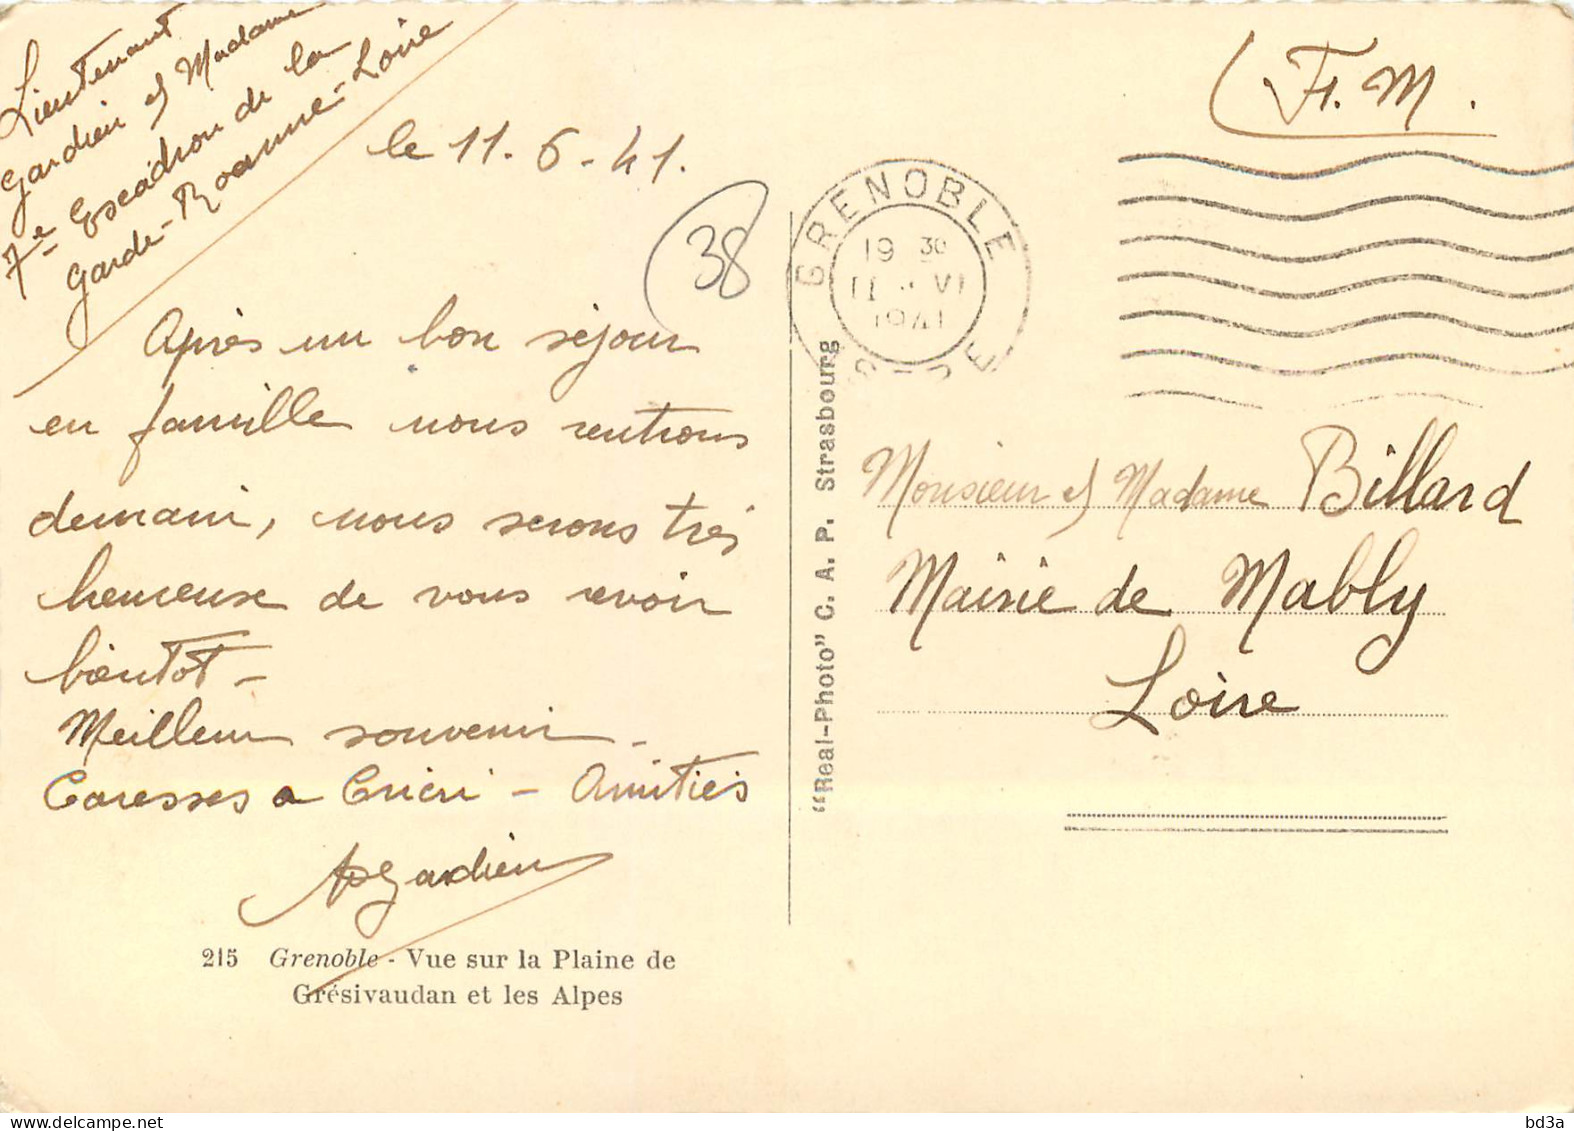 Lieutenant
Gardien et Madame
7e Escadron de la
Garde - Roanne - Loire
le 11. 6 - 41.
38
Après un bon séjour
en famille nous rentrons
demain, nous serons très
heureuse de vous revoir
bientot -
Meilleur souvenir -
Caresses a - Amitiés
Gardien
215 Grenoble - Vue sur la Plaine de
Grésivaudan et les Alpes
"Real-Photo" C. A. P. Strasbourg
F. M.
GRENOBLE
19 30
II VI
1941
Monsieur et Madame Billard
Mairie de Mably
Loire
bd3a